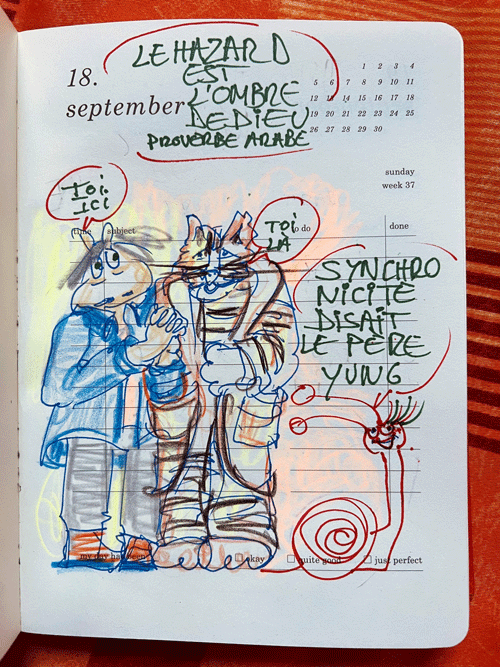 LE HAZARD
EST
L'OMBRE
DE DIEU
PROVERBE ARABE
18.
september
1 2 3 4
5 6 7 8 9 10 11
12 13 14 15 16 17 18
19 20 21 22 23 24 25
26 27 28 29 30
sunday
week 37
TOI.
ICI
time subject
to do
done
TOI
LA
SYNCHRO
NICITE
DISAIT
LE PERE
YUNG
my day has been
okay
quite good
just perfect